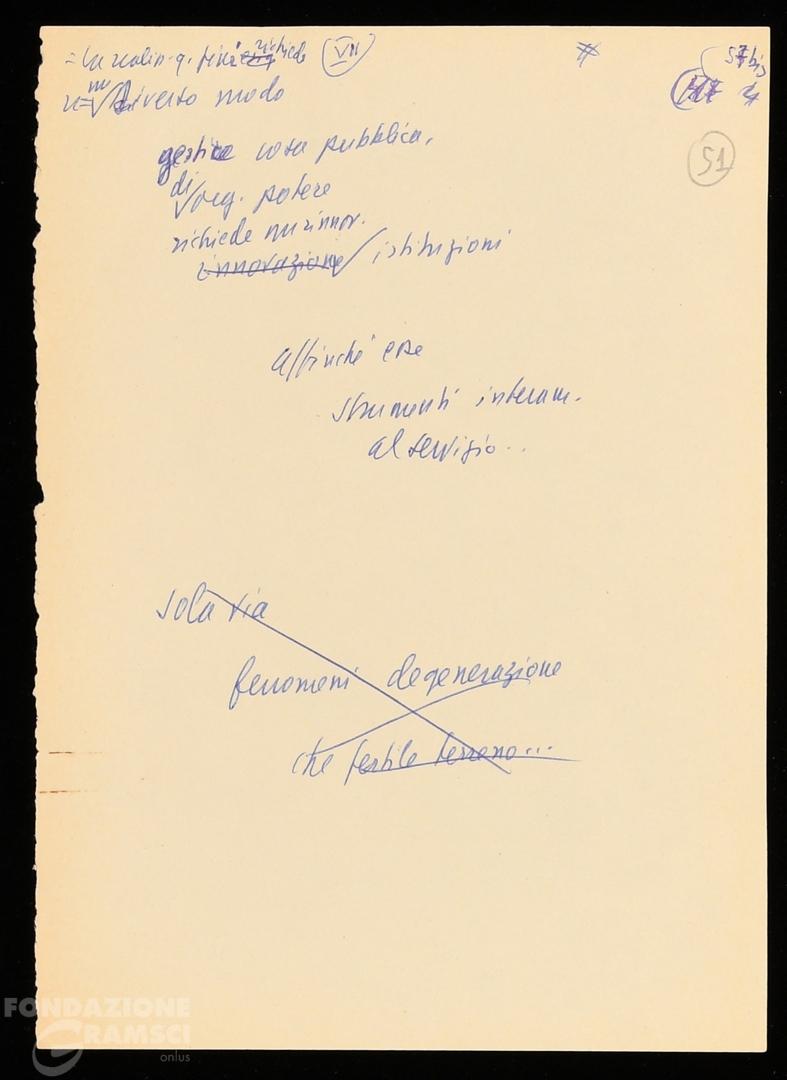 = la realiz. q. fini richiede VII # 57bis
un diverso modo
51
gestire cosa pubblica,
di org. potere
richiede un rinnov.
innovazione istituzioni
affinché esse
strumenti interam.
al servizio..
sola via
fenomeni degenerazione
che fertile terreno...
FONDAZIONE
GRAMSCI
onlus